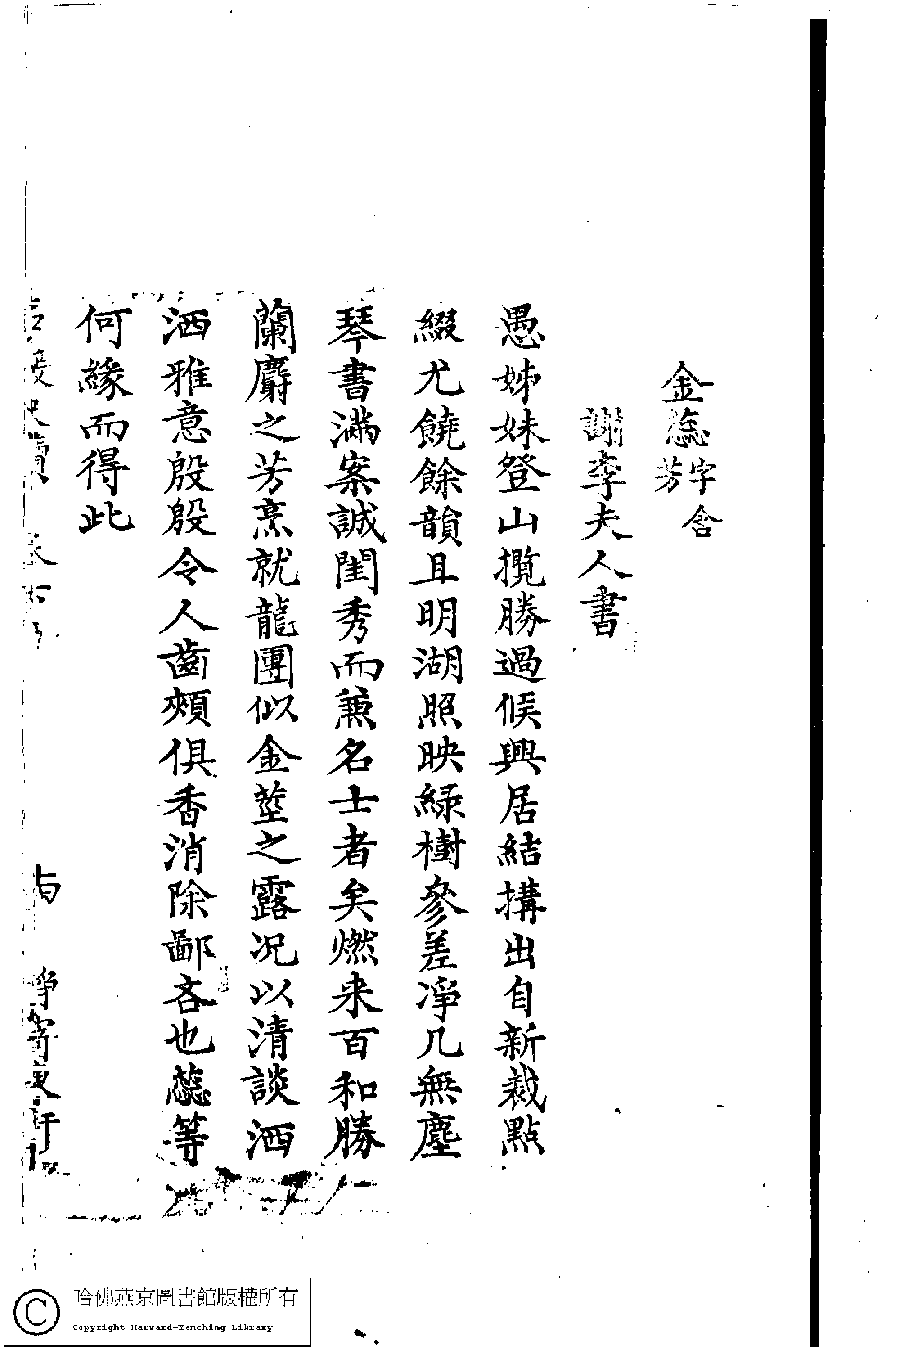 金蕊字含芳
謝李夫人書
愚姊妹登山攬勝過候興居結搆出自新裁點
綴尤饒餘韻且明湖照映綠樹參差凈几無塵
琴書滿案誠閨秀而兼名士者矣燃来百和勝
蘭麝之芳烹就龍團似金莖之露况以清談洒
洒雅意殷殷令人齒頰俱香消除鄙吝也蕊等
何緣而得此
哈佛燕京圖書館版權所有
Copyright Harvard-Yenching Library